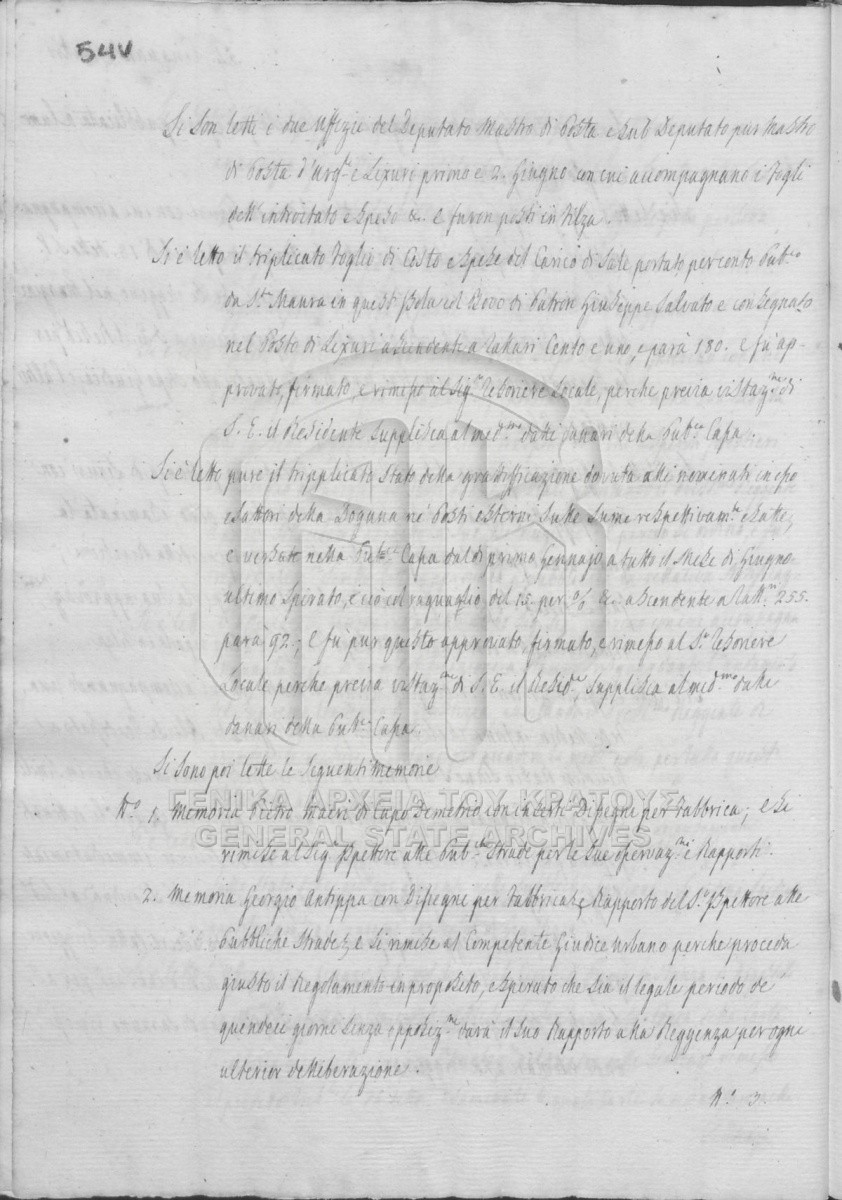 54V
Si son letti i due Uffizie del Deputato Mastro di Posta e sub Deputato pur Mastro
di Posta d'Arg.li e Lixuri primo e 2. Giugno con cui accompagnano i Fogli
dell'introitato e speso &c. e furon posti in Filza.
Si è letto il triplicato Foglio di Costo e spese del Carico di Sale portato per conto Pub.co
da S.ta Maura in quest'Isola col Bovo di Patron Giuseppe Salvato e consegnato
nel Posto di Lixuri ascendente a Tallari Cento e uno, e parà 180. e fu ap-
provato, firmato, e rimesso al Sig.r Tesoriere Locale, perche previa vistaz.ne di
S. E. il Residente supplisca al med.mo dalli danari della Pub.ca Cassa.
Si è letto pure il tripplicato stato della grattifficazione dovuta alli nominati in esso
esattori della Dogana ne' Posti esterni, sulle sume respettivam.te esatte,
e versate nella Pub.ca Cassa dal dì primo Gennajo a tutto il Mese di Giugno
ultimo spirato, e ciò col raguaglio del 15. per % &c. ascendente a Tall.ri 255.
parà 92; e fu pur questo approvato, firmato, e rimesso al S.r Tesoriere
Locale perche previa vistaz.ne di S. E. il Resid.te supplisca al med.mo dalli
danari della Pub.ca Cassa.
Si sono poi lette le seguenti memorie
N.o 1. Memoria Pietro Macri di Capo Demetrio con inserti Disegni per Fabbrica; e si
rimise al Sig.r Ispettore alle Pub.che Strade per le sue osservaz.ni e Rapporti.
2. Memoria Georgio Antippa con Disegni per Fabbrica, e Rapporto del S.r Ispettore alle
Pubbliche Strade, e si rimise al Competente Giudice Urbano perche proceda
giusto il Regolamento in proposito, e spirato che sia il legale periodo de
quendeci giorni senza opposiz.ne darà il suo Rapporto alla Reggenza per ogni
ulterior delliberazione.
N.o 3.
ΓΕΝΙΚΑ ΑΡΧΕΙΑ ΤΟΥ ΚΡΑΤΟΥΣ
GENERAL STATE ARCHIVES